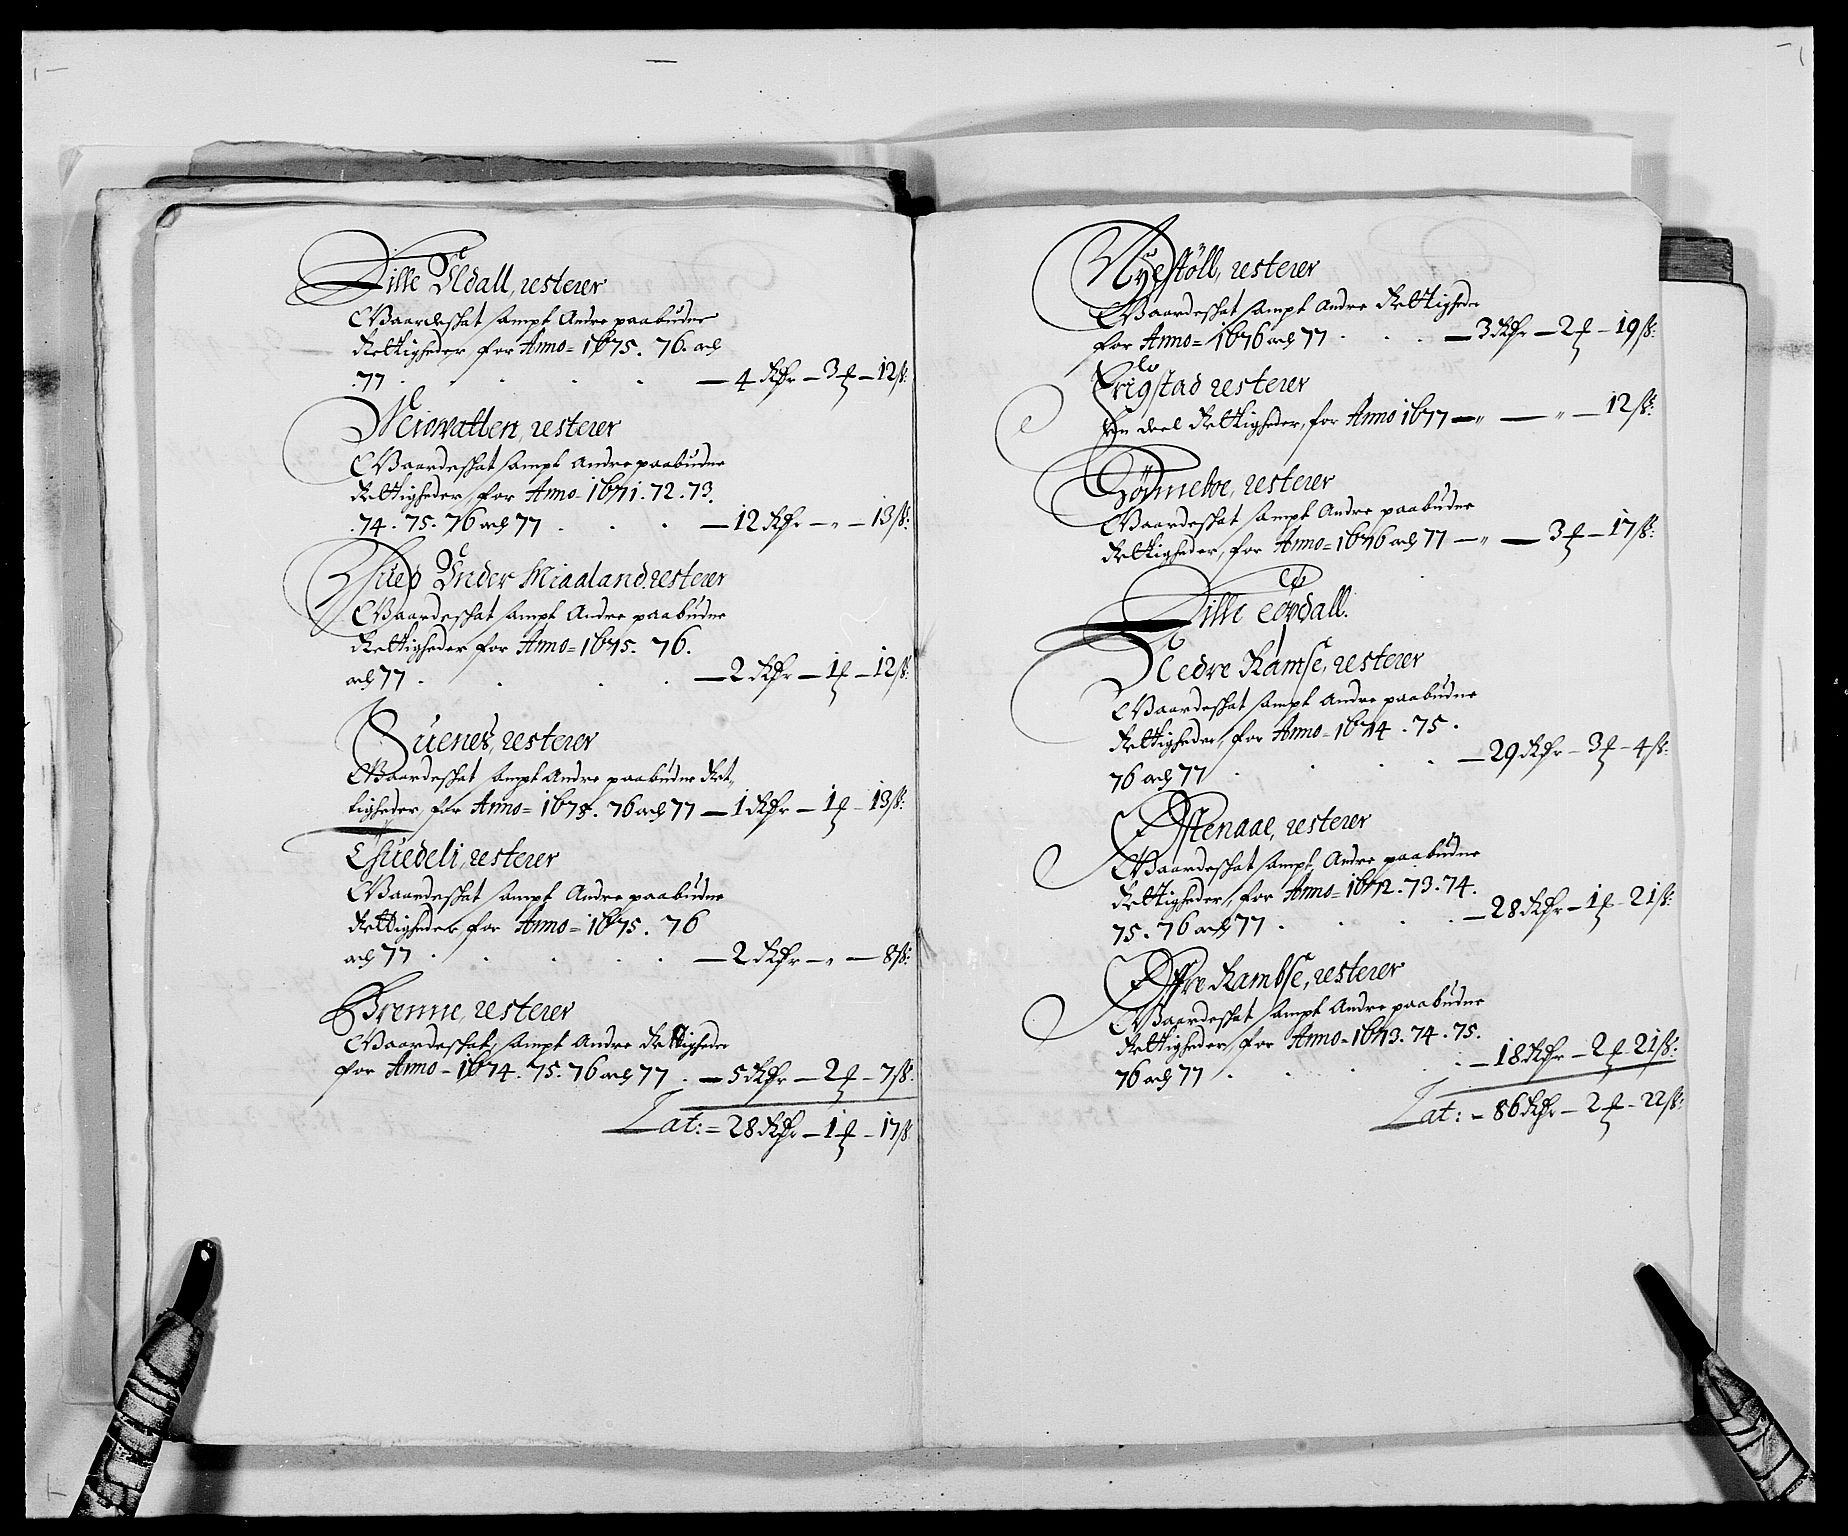 Lille Udall, resterer
Waardeshat sampt Andre paabudne
Rettigheder for Anno = 1675. 76. och
.77 . . . . — 4 Rdr — 3 ƒ — 12 ß:
Meiovatten, resterer
Waardeshat sampt Andre paabudne
Rettigheder, for Anno = 1671. 72. 73.
.74. 75. 76 och 77 . . . — 12 Rdr — „ — 13 ß:
Under Miaaland resterer
Waardeshat sampt Andre paabudne
Rettigheder for Anno = 1675. 76.
och 77 . . . . — 2 Rdr — 1 ƒ — 12 ß:
Suenes, resterer
Waardeshat sampt Andre paabudne Ret-
tigheder, for Anno = 1675. 76 och 77 — 1 Rdr — 1 ƒ — 13 ß:
resterer
Waardeshat sampt Andre paabudne
Rettigheder for Anno = 1675. 76
och 77 . . . . . — 2 Rdr — „ — 8 ß:
Brenne, resterer
Waardeshat, sampt Andre Rettigheder
for Anno = 1674. 75. 76 och 77 . — 5 Rdr — 2 ƒ — 7 ß:
Lat: = 28 Rdr — 1 ƒ — 17 ß:
Nyestöll, resterer
Waardeshat sampt Andre Rettigheder
for Anno = 1676 och 77 . . . — 3 Rdr — 2 ƒ — 19 ß:
Frigstad resterer
En deel Rettigheder, for Anno 1677 — „ — „ — 12 ß:
resterer
Waardeshat sampt Andre paabudne
Rettigheder, for Anno = 1676 och 77 — „ — 3 ƒ — 17 ß:
Lille
Nedre Ramse, resterer
Waardeshat sampt Andre paabudne
Rettigheder, for Anno = 1674. 75.
76 och 77 . . . . — 29 Rdr — 3 ƒ — 4 ß:
Østenaae, resterer
Waardeshat sampt Andre paabudne
Rettigheder, for Anno = 1672. 73. 74.
75. 76 och 77 . . . . — 28 Rdr — 1 ƒ — 21 ß:
Øffre Rambse, resterer
Waardeshat sampt Andre paabudne
Rettigheder for Anno = 1673. 74. 75.
76 och 77 . . . . — 18 Rdr — 2 ƒ — 21 ß:
Lat: — 86 Rdr — 2 ƒ — 22 ß: